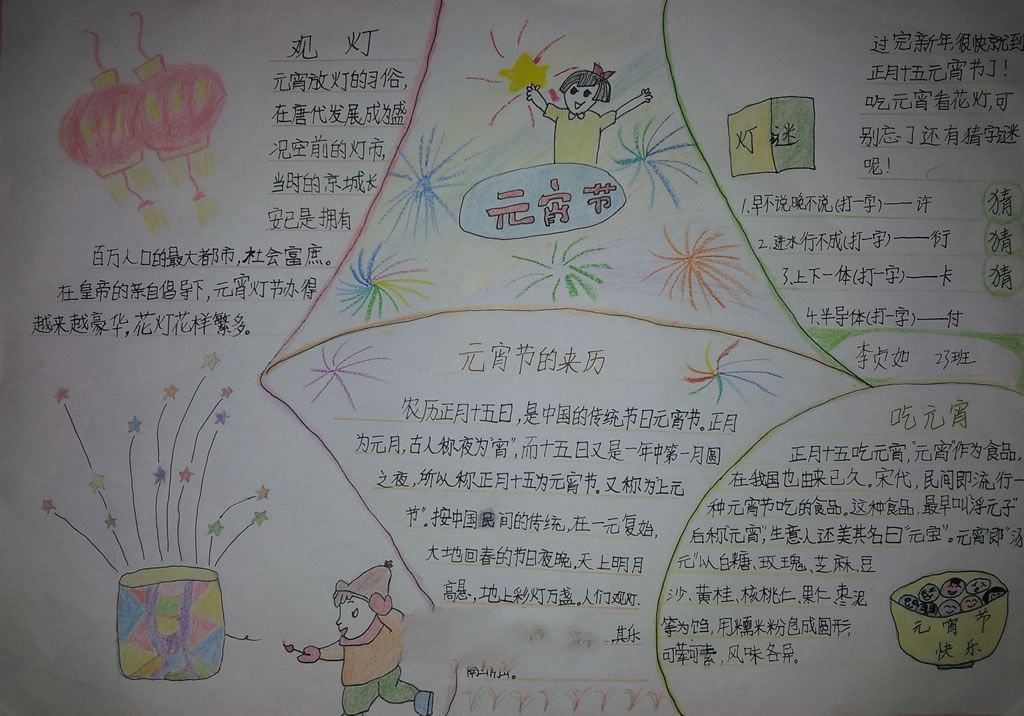 观 灯
元宵放灯的习俗,
在唐代发展成为盛
况空前的灯市,
当时的京城长
安已是拥有
百万人口的最大都市,社会富庶。
在皇帝的亲自倡导下,元宵灯节办得
越来越豪华,花灯花样繁多。
元宵节
过完新年,很快就到
正月十五元宵节了!
吃元宵看花灯,可
别忘了还有猜字谜
呢!
灯谜
1.早不说晚不说(打一字)——许
2.进水行不成(打一字)——衍
3.上下一体(打一字)——卡
4.半导体(打一字)——付
猜
猜
猜
李贞如 23班
元宵节的来历
农历正月十五日,是中国的传统节日元宵节。正月
为元月,古人称夜为"宵",而十五日又是一年中第一月圆
之夜,所以称正月十五为元宵节。又称为"上元
节"。按中国民间的传统,在一元复始,
大地回春的节日夜晚,天上明月
高悬,地上彩灯万盏。人们观灯、
其乐
吃元宵
正月十五吃元宵,"元宵"作为食品,
在我国也由来已久。宋代,民间即流行一
种元宵节吃的食品。这种食品,最早叫"浮元子"
后称"元宵",生意人还美其名曰"元宝"。元宵即"汤
元"以白糖、玫瑰、芝麻、豆
沙、黄桂、核桃仁、果仁、枣泥
等为馅,用糯米粉包成圆形,
可荤可素,风味各异。
元宵节
快乐